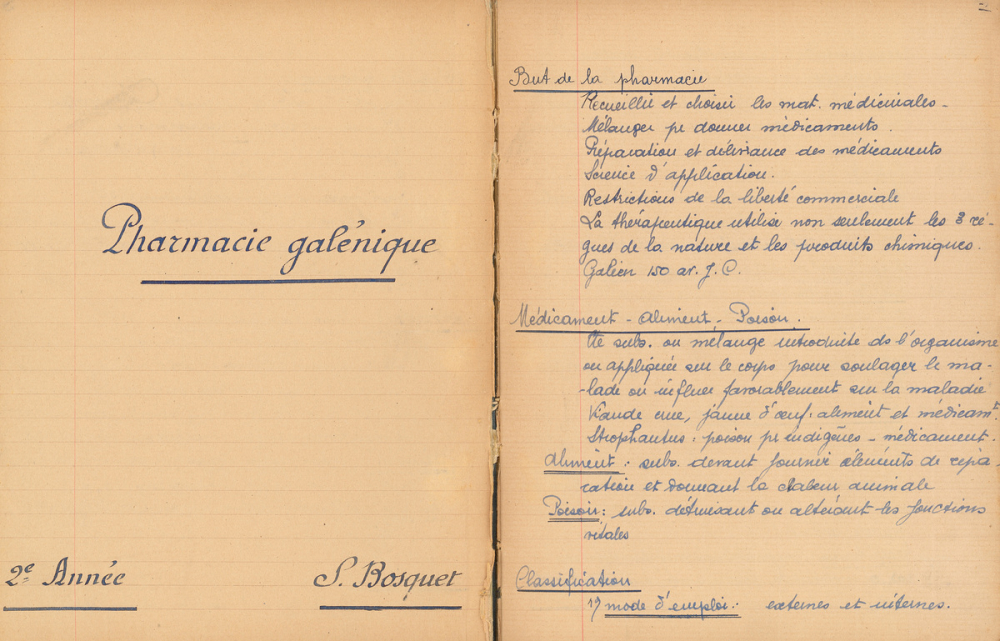 Pharmacie galénique
2e Année
S. Bosquet
But de la pharmacie
Recueillir et choisir les mat. médicinales -
Mélanger pr donner médicaments.
Préparation et délivrance des médicaments
Science d'application.
Restrictions de la liberté commerciale
La thérapeutique utilise non seulement les 3 rè-
gnes de la nature et les produits chimiques.
Galien 150 av. J. C.
Médicament - Aliment - Poison.
Tte subs. ou mélange introduite ds l'organisme
ou appliquée sur le corps pour soulager le ma-
-lade ou influer favorablement sur la maladie
Viande crue, jaune d'œuf: aliment et médicamt.
Strophantus: poison pr indigènes - médicament.
Aliment: subs. devant fournir éléments de répa-
ration et donnant la chaleur animale
Poison: subs. détruisant ou altérant les fonctions
vitales
Classification
1) mode d'emploi: externes et internes.